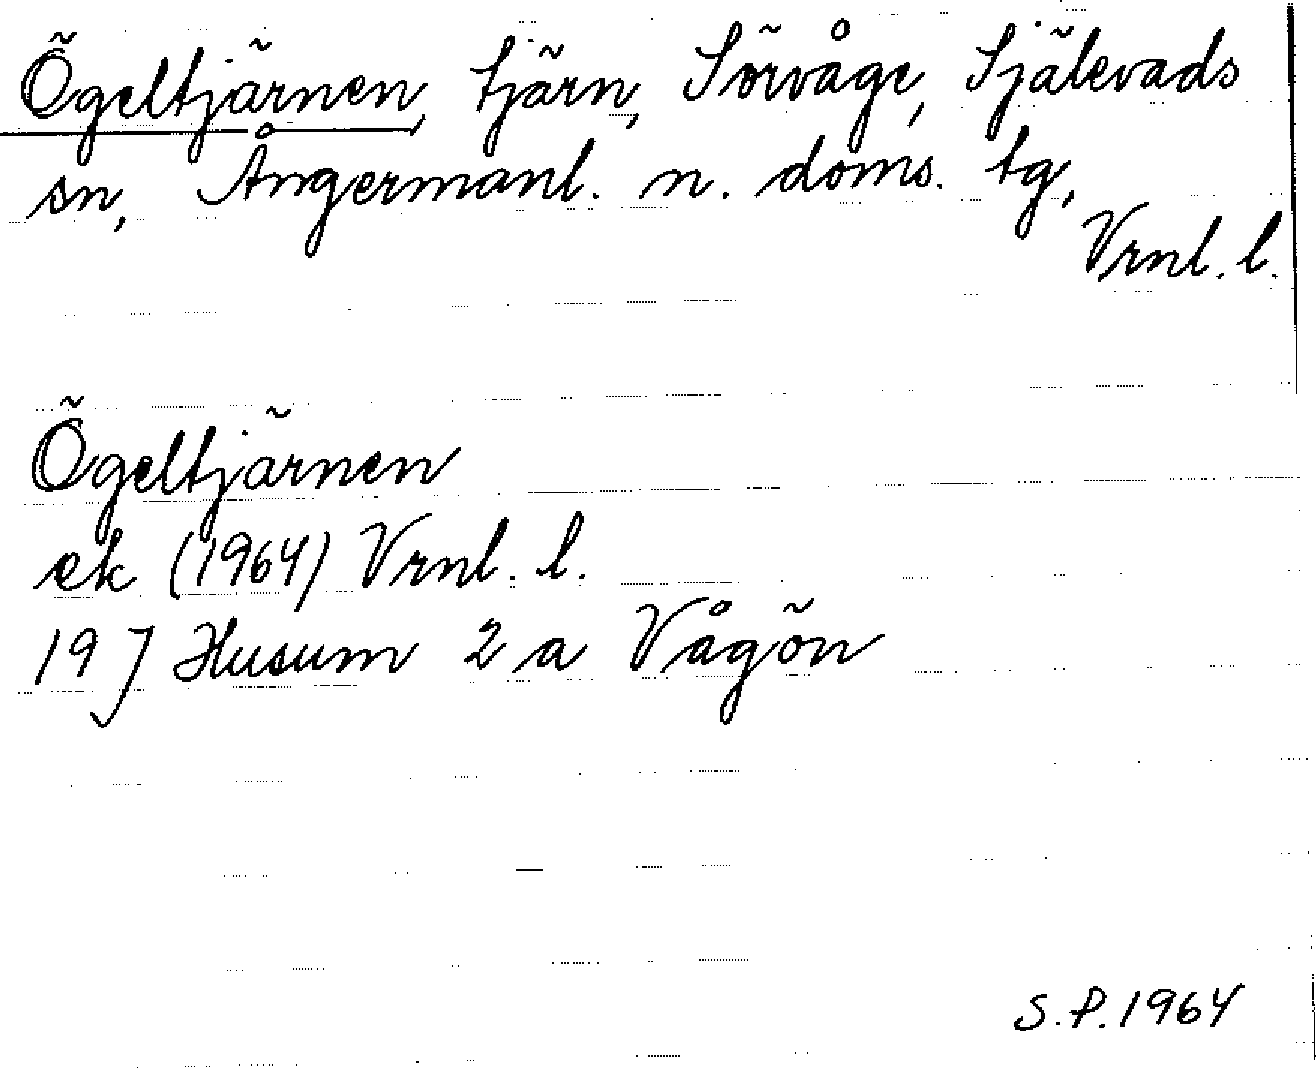 Ögeltjärnen, tjärn, Sörvåge, Själevads
sn, Ångermanl. n. doms. tg,
Vrnl. l.
Ögeltjärnen
ek (1964) Vrnl. l.
19 J Husum 2 a Vågön
S.P. 1964